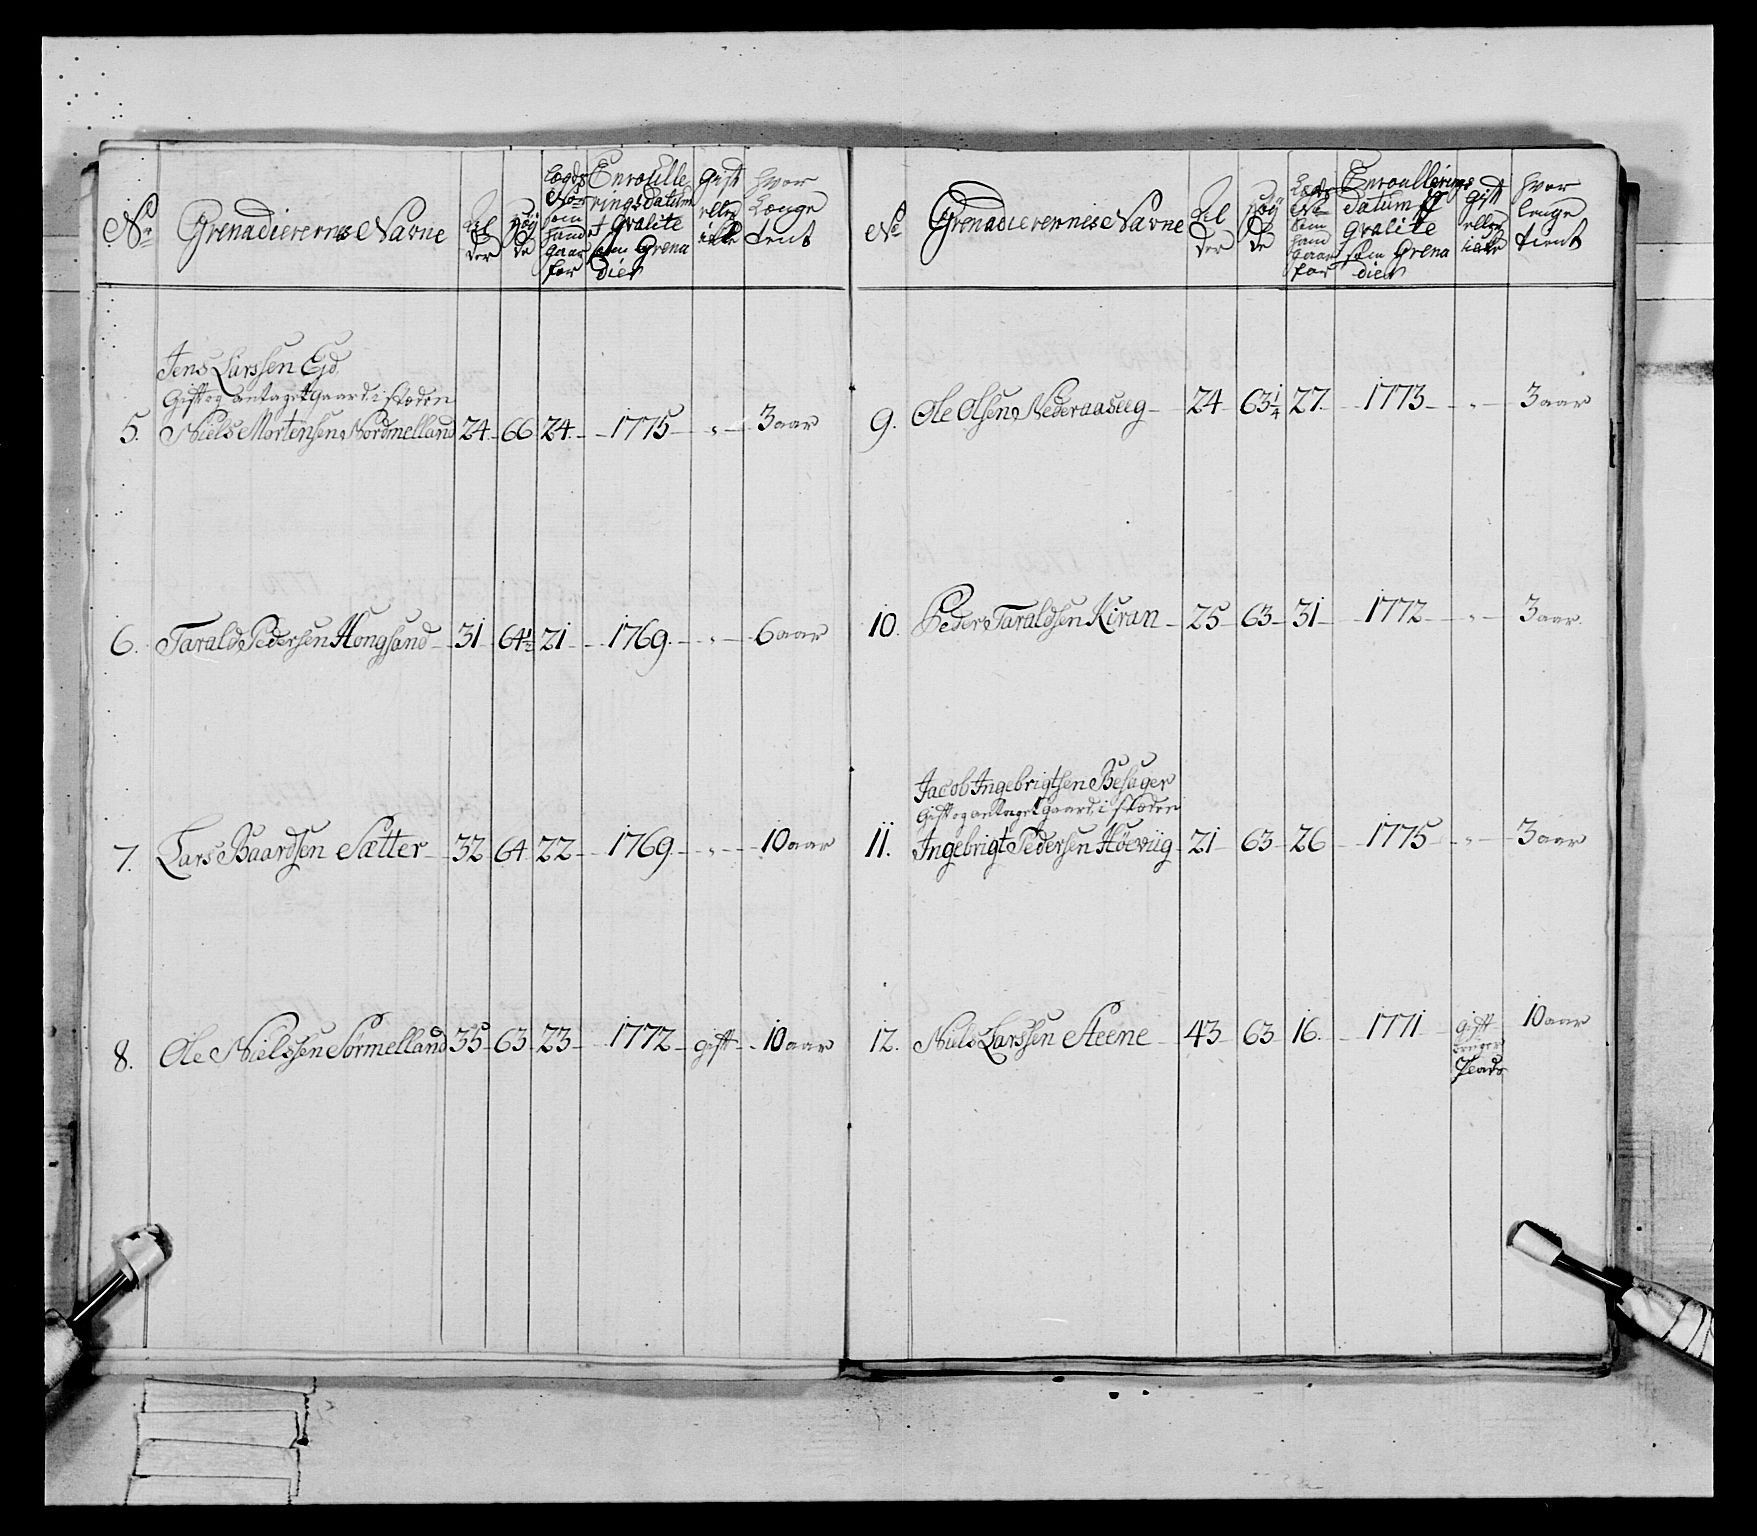 No.
Grenadierernes Navne
Al
der
Høy
de
Lægds
No.
som
hand
gaar
for
Enroulle
ringsdatum
i Qvalite
som Grena
dier
Gift
eller
ikke
hvor
Længe
tient
Jens Larssen Eid
Gift og antaget Gaard, i stæden
5. Niels Mortensen Nordmelland 24 66 24 1775 " 3 aar
6. Tarald Pedersen Hongsand 31 64½ 21 1769 " 6 aar
7. Lars Baardsen Sætter 32 64 22 1769 " 10 aar
8. Ole Nielssen Sørmelland 35 63 23 1772 gift 10 aar
No.
Grenadierernes Navne
Al
der
Høy
de
Lægds
No.
som
hand
gaar
for
Enroullerings
datum
Qvalite
som Grena
dier
Gift
eller
ikke
hvor
lenge
tient
9. Ole Olsen Nederaaseeg 24 63¼ 27 1773 " 3 aar
10. Peder Taraldsen Kiran 25 63 31 1772 " 3 aar
Jacob Ingebrigtsen Besager
Gift og antaget gaard, i stæden
11. Ingebrigt Pedersen Høeviig 21 63 26 1775 " 3 aar
12. Niels Larssen Steene 43 63 16 1771 gift 10 aar
bruger